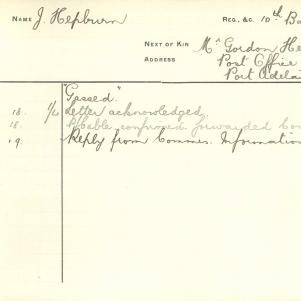 NAME J. Hepburn
REG., &C. 10th Ba
NEXT OF KIN Mr Gordon He
ADDRESS Post Office
Port Adelai
"Gassed."
18. Letter acknowledged.
18. confirmed forwarded
19. Reply from Commrs. Information